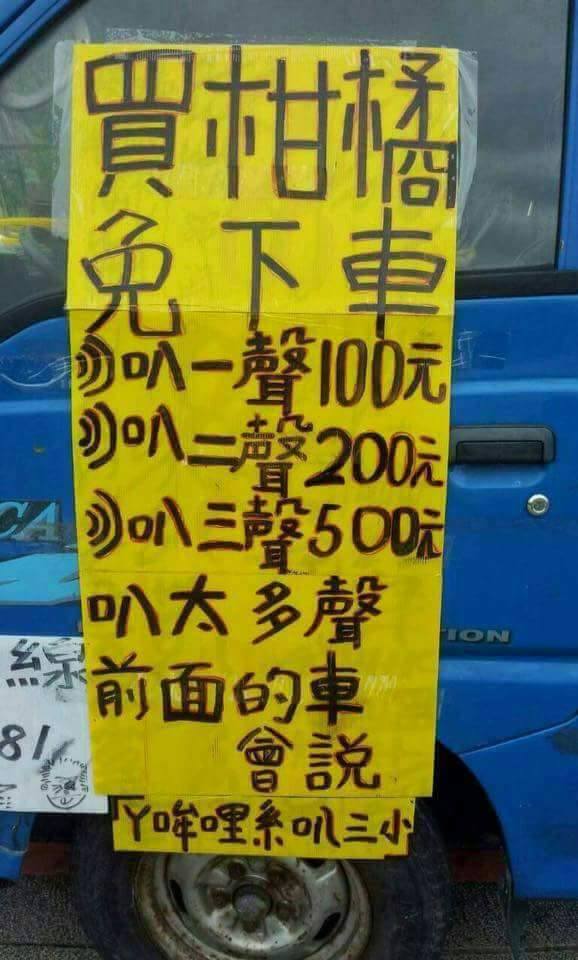 買柑橘
免下車
叭一聲100元
叭二聲200元
叭三聲500元
叭太多聲
前面的車
會説
ㄚ哞哩系叭三小
CA
TION
線
81